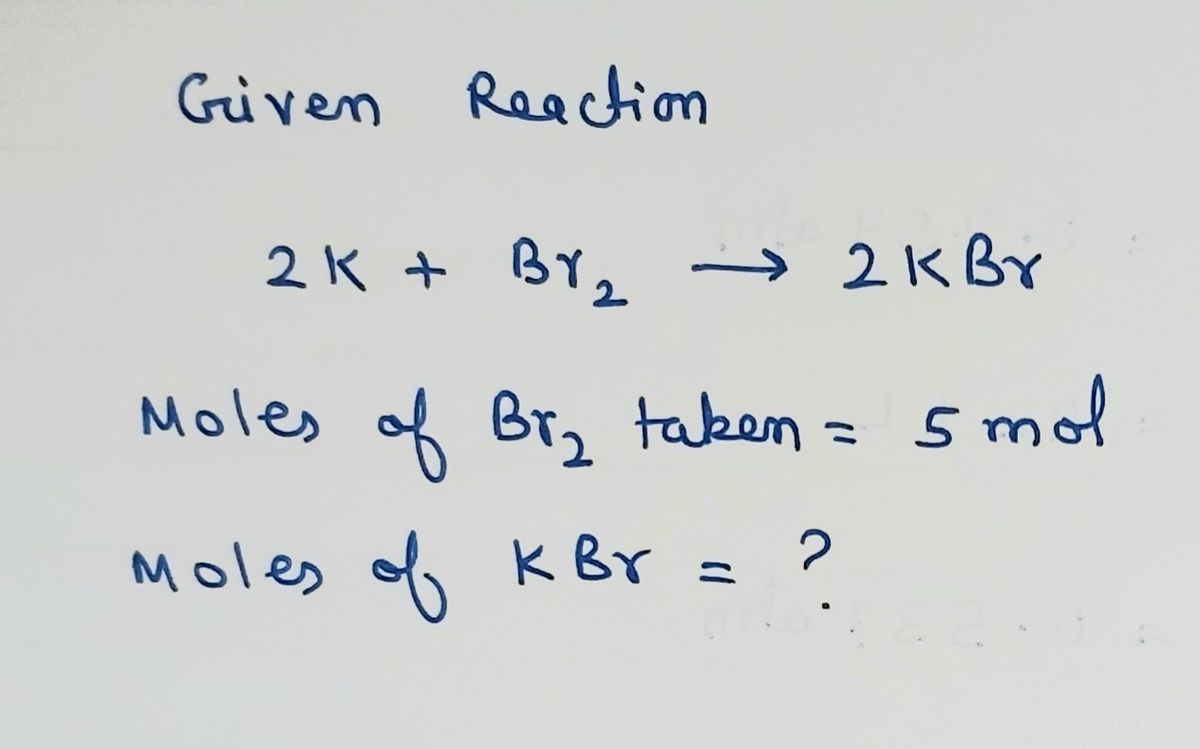 Given Reaction
2K + Br₂ → 2KBr
Moles of Br₂ taken = 5 mol
Moles of KBr = ?